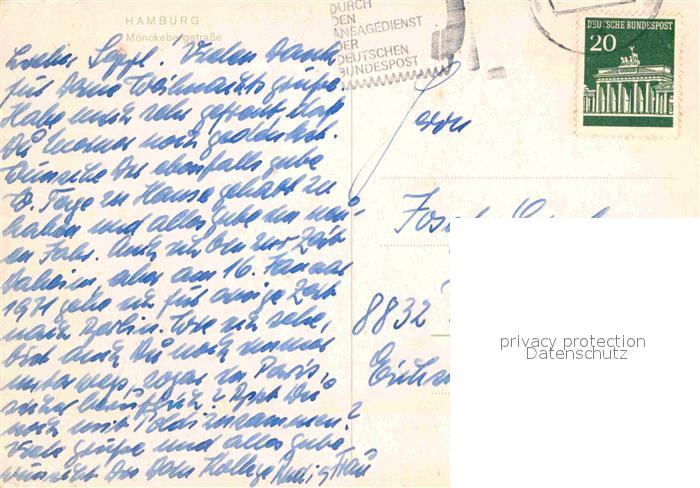 HAMBURG
Mönckebergstraße
Lieber Seppl. Vielen Dank
für Deine Weihnachtsgrüße.
Habe mich sehr gefreut daß
Du immer noch gedenkst.
Wünsche Dir ebenfalls gute
W. Tage zu Hause gehabt zu
haben und alles gute im neu-
en Jahr. Auch ich bin zur Zeit
daheim, aber am 16. Januar
1971 gehe ich für einige Zeit
nach Berlin. Wie ich sehe,
bist auch Du noch immer
unterwegs, sogar in Paris,
noch mit Poldi zusammen?
Viele grüße und alles gute
wünscht Dir Dein Kollege
DURCH
DEN
ANSAGEDIENST
DER
DEUTSCHEN
BUNDESPOST
DEUTSCHE BUNDESPOST
20
Herrn
Josef
8832
privacy protection
Datenschutz